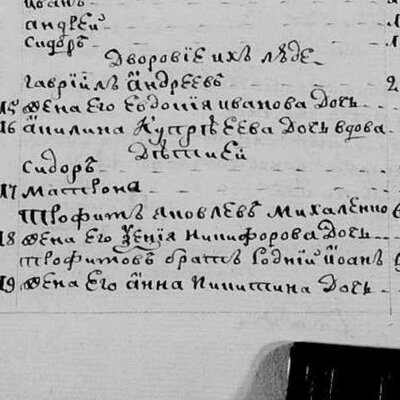 иванъ
андрей
Сидоръ
Дворовїе ихъ люде
гаврїилъ андреевъ 2
15 жена Его Евдокїя иванова Дочь
16 Акилина Купрѣева Дочь вдова
Дѣтией
Сидоръ
17 Матрона
Трофимъ яковлевъ михаленко
18 жена Его Ѯенїя никифорова Дочь
трофимовъ братъ родній їоанъ
19 жена Его Анна Никитина Дочь